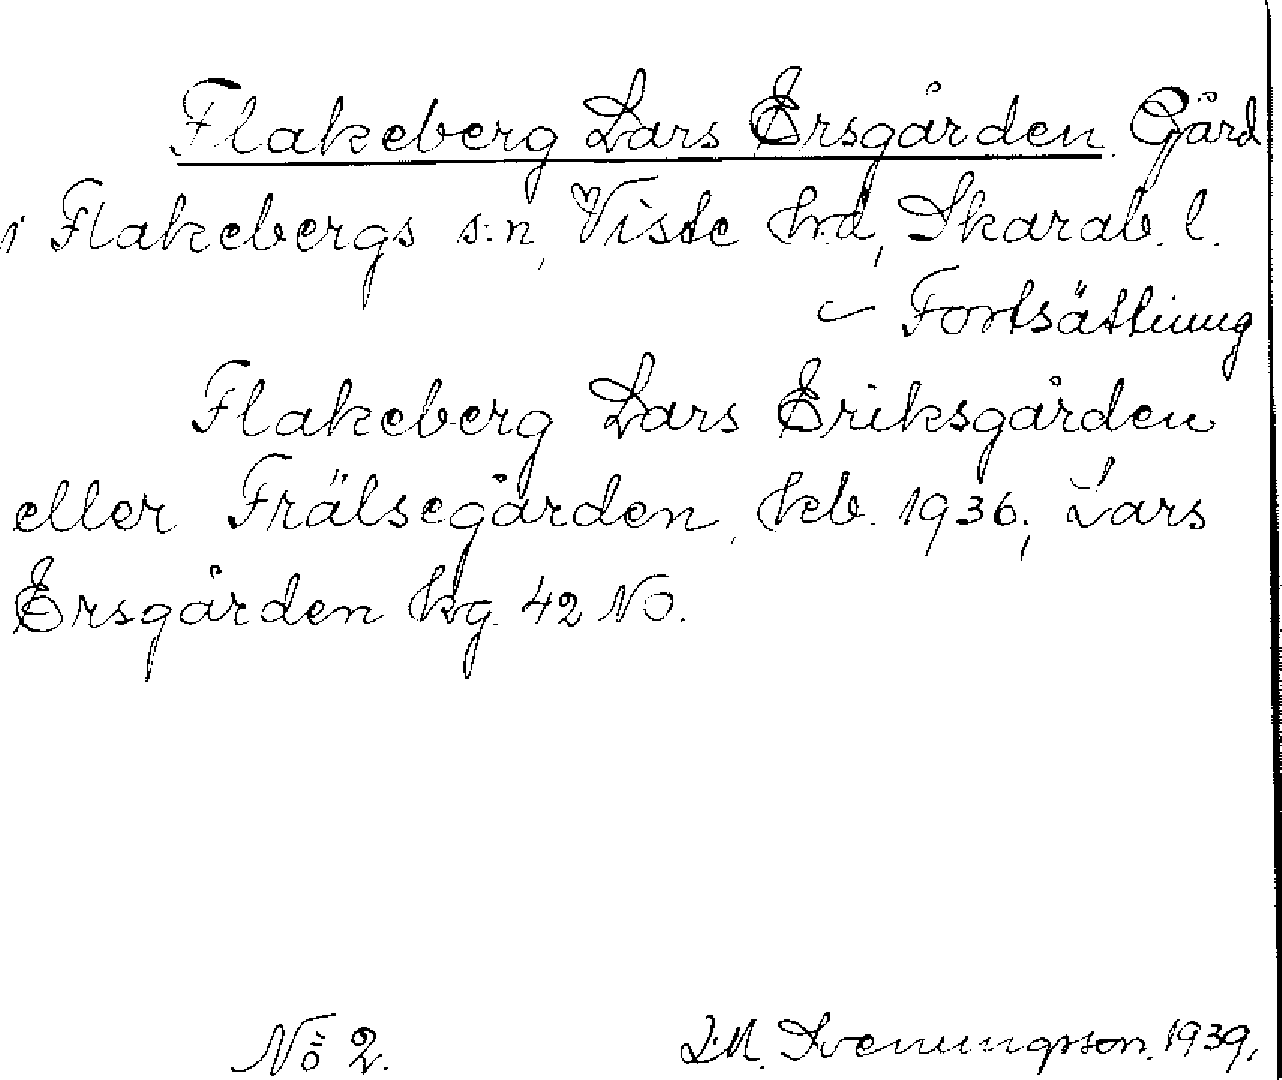 Flakeberg Lars Ersgården. Gård
i Flakebergs s:n, Viste hrd, Skarab. l.
Fortsättning
Flakeberg Lars Eriksgården
eller Frälsegården, kb. 1936; Lars
Ersgården kg. 42 NO.
No 2. J.M. Svenungsson. 1939.